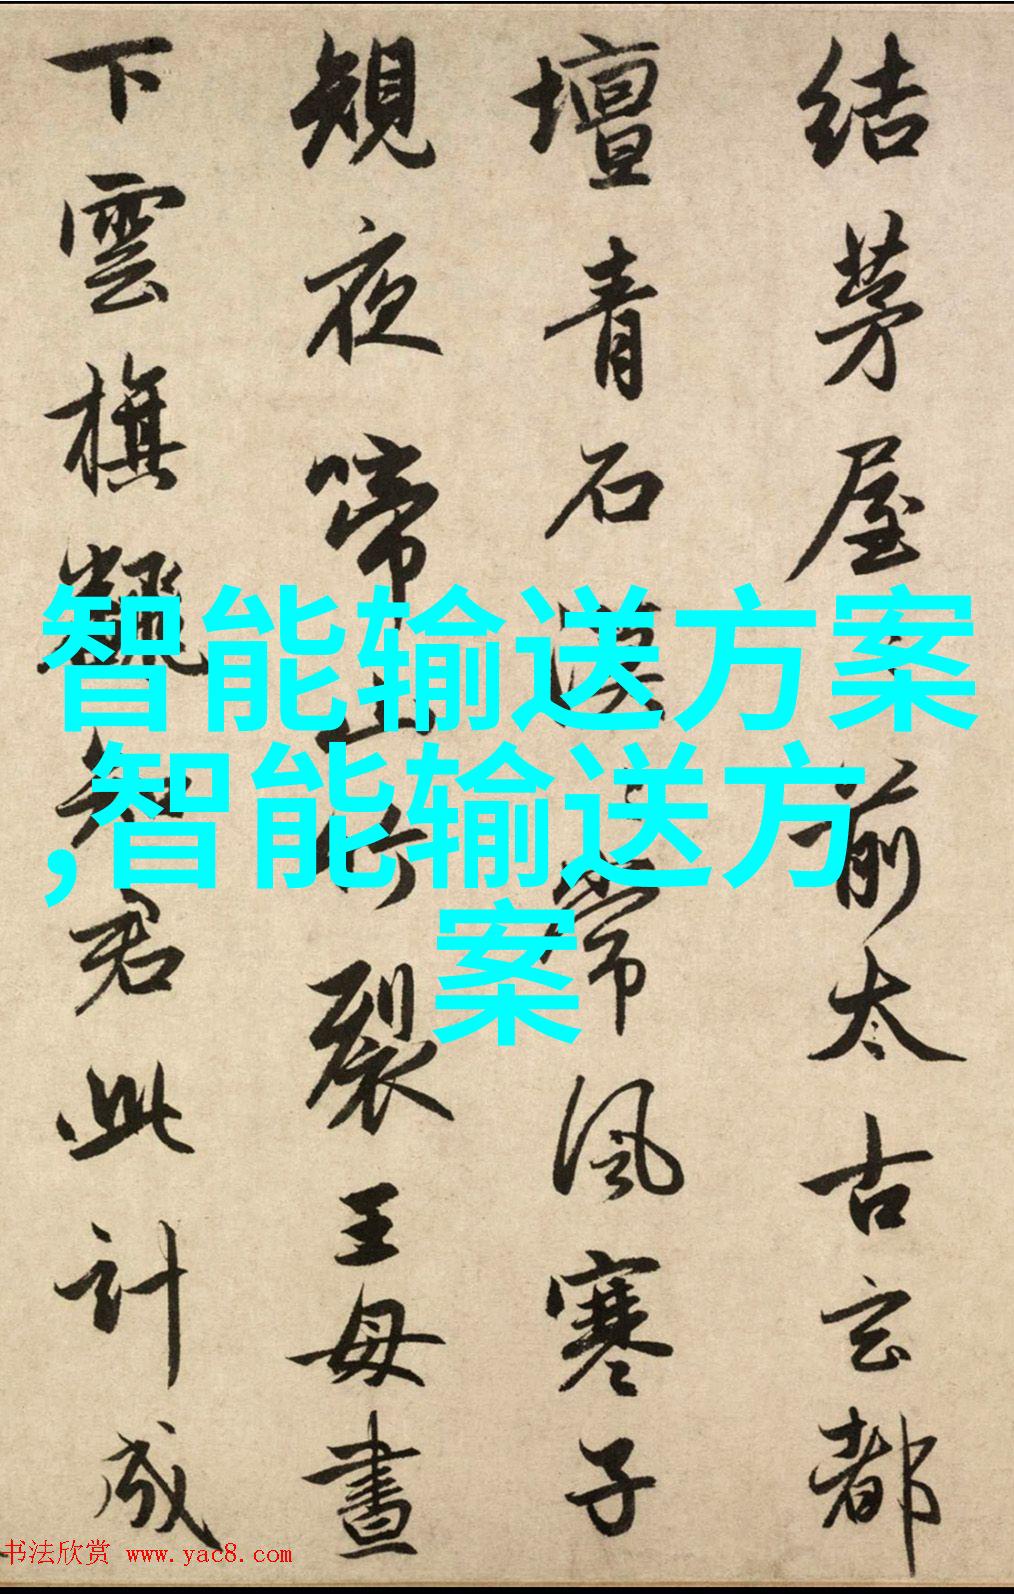 結茅屋前太古玄都
壇青石漠常風寒子
規夜啼山竹裂王母晝
下雲旗飜知君此計成
智能输送方案
,智能输送方
案
书法欣赏 www.yac8.com